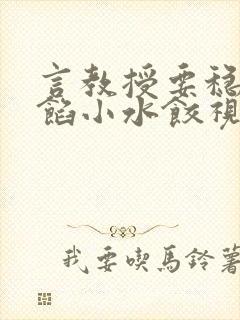 言教授要穩
餡小水餃視
我要喫馬鈴薯